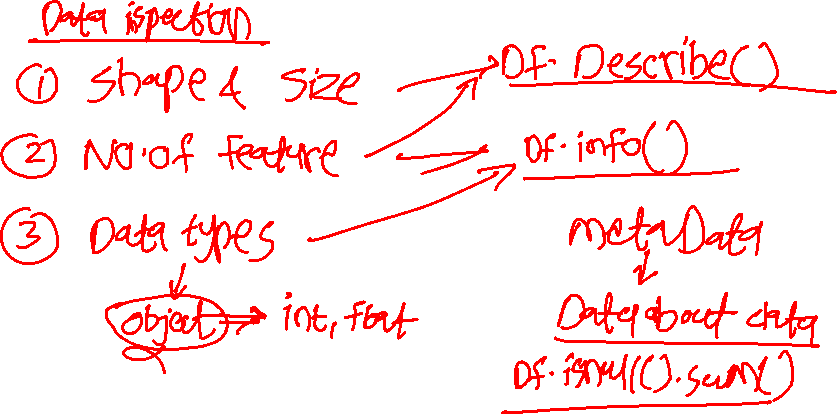 Data ispection
① Shape & Size
② No.of feature
③ Data types
object → int, float
Df. Describe()
Df.info()
metaData
Data about data
Df.isnull().sum()